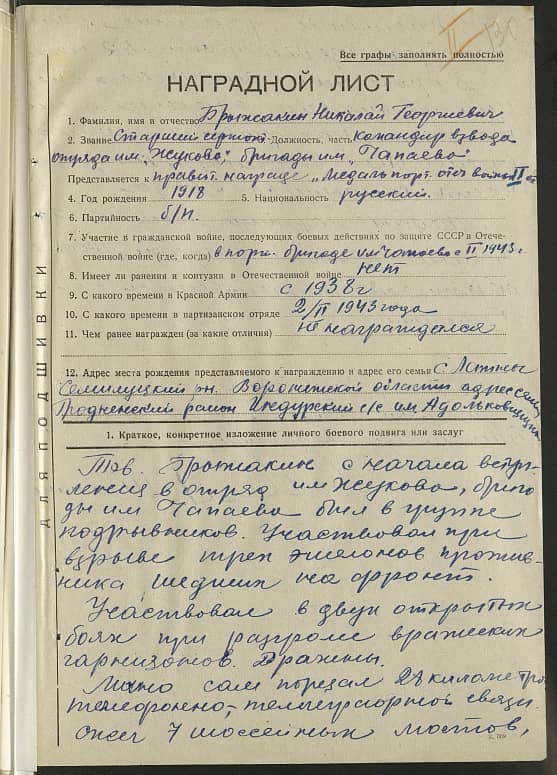 II
Все графы заполнять полностью
НАГРАДНОЙ ЛИСТ
1. Фамилия, имя и отчество Брыжакин Николай Георгиевич
2. Звание Старший сержант Должность, часть командир взвода
отряда им. „Жукова", бригады им „Чапаева"
Представляется к правит. награде „Медаль порт. отеч войны II ст
4. Год рождения 1918 5. Национальность русский.
6. Партийность б/п.
7. Участие в гражданской войне, последующих боевых действиях по защите СССР в Отече-
ственной войне (где, когда) в парт. бригаде им Чапаева с II 1943 г
8. Имеет ли ранения и контузии в Отечественной войне нет
9. С какого времени в Красной Армии с 1938 г
10. С какого времени в партизанском отряде 2/II 1943 года
11. Чем ранее награжден (за какие отличия) не награждался
12. Адрес места рождения представляемого к награждению и адрес его семьи с Латное
Семилуцкий рн. Воронежской области адрес семьи
Гродненский район Индурский с/с им
1. Краткое, конкретное изложение личного боевого подвига или заслуг
Тов. Брыжакин с начала вступ-
ления в отряд им Жукова, брига
ды им Чапаева был в группе
подрывников. Участвовал при
взрыве трех эшелонов против-
ника шедших на фронт.
Участвовал в двух открытых
боях при разгроме вражеских
гарнизонов. Дражены.
Лично сам порезал 28 километров
телефонно-телеграфной связи.
Сжег 7 шоссейных мостов,
ДЛЯ ПОДШИВКИ